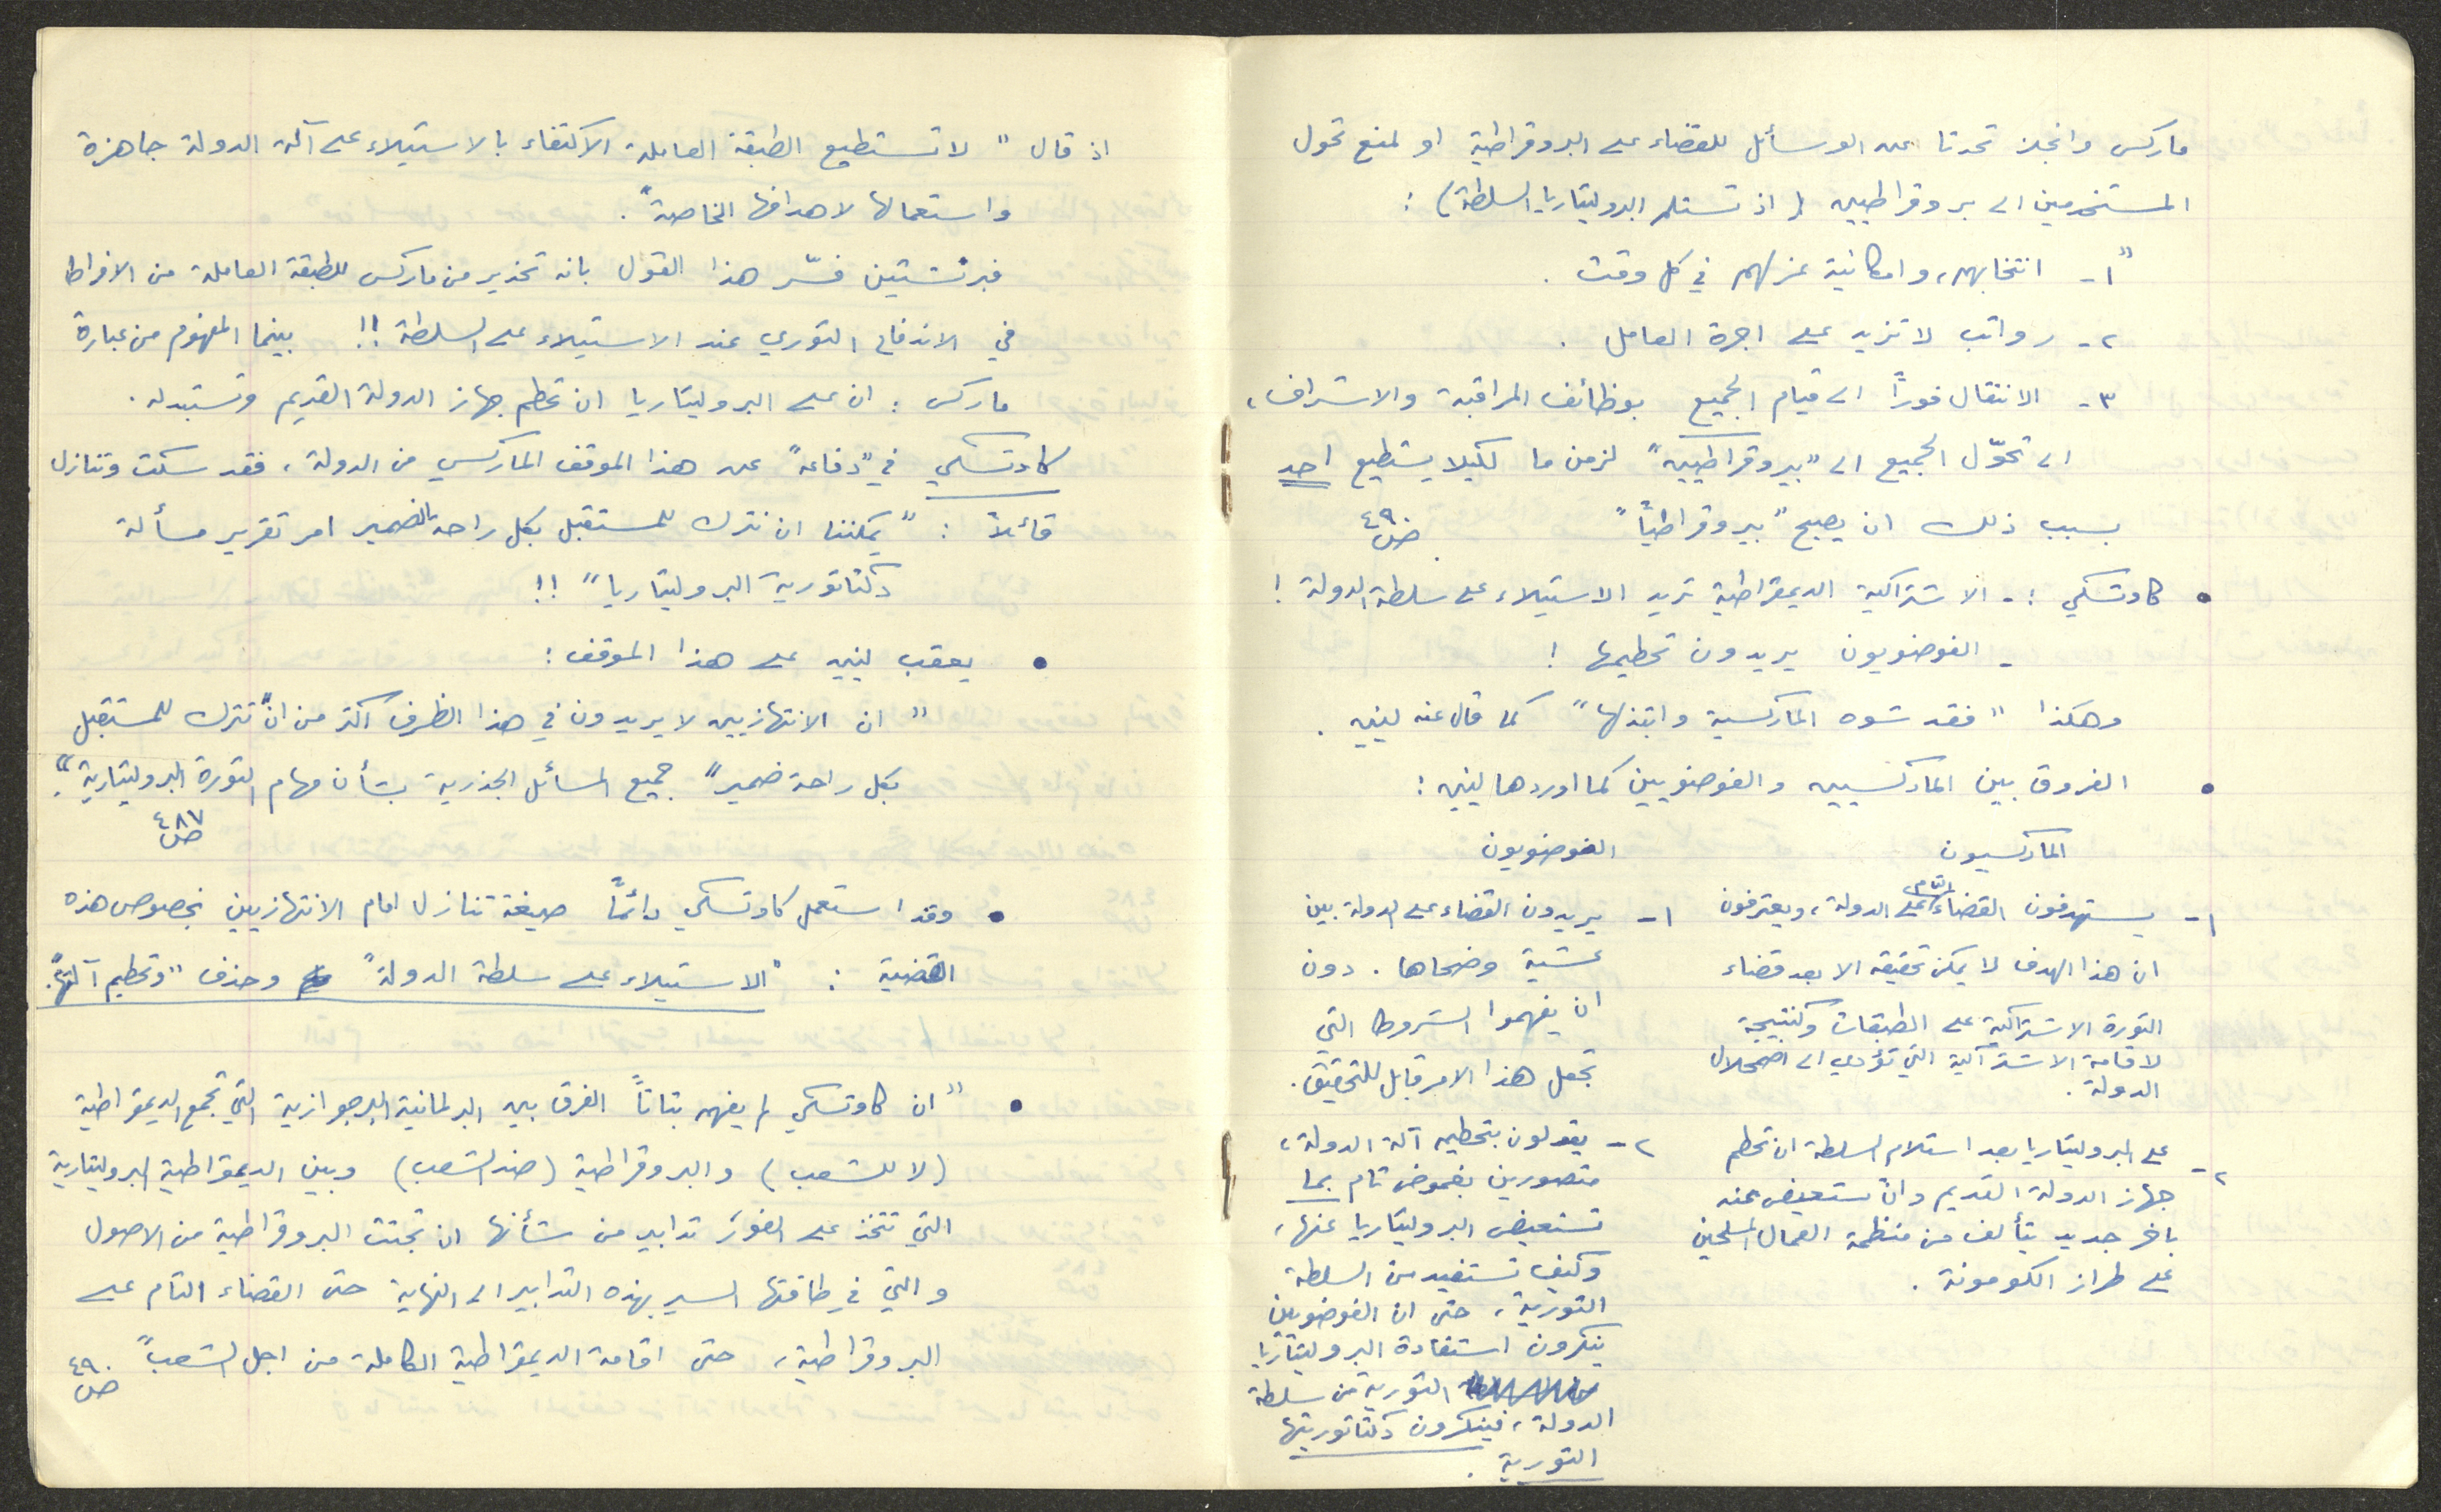 اذ قال " لا تستطيع الطبقة العاملة الاكتفاء بالاستيلاء على آلة الدولة جاهزة
واستعمالها لاهدافها الخاصة".
فبرنشتين فسّر هذا القول بانه تحذير من ماركس للطبقة العاملة من الافراط
في الاندفاع الثوري عند الاستيلاء على السلطة !! بينما المفهوم من عبارة
ماركس : ان على البروليتاريا ان تحطم جهاز الدولة القديم وتستبدله .
كاوتسكي في "دفاعه" عن هذا الموقف الماركسي من الدولة ، فقد سكت وتنازل
قائلاً : " يمكننا ان نترك للمستقبل بكل راحة الضمير امر تقرير مسألة
دكتاتورية البروليتاريا " !!
• يعقب لينين على هذا الموقف :
" ان الانتهازيين لا يريدون في هذا الظرف اكثر من ان "نترك للمستقبل
بكل راحة ضمير" جميع المسائل الجذرية بشأن مهام الثورة البروليتارية".
ص ٤٨٧
• وقد استعمل كاوتسكي دائماً صيغة تنازل امام الانتهازيين بخصوص هذه
القضية : "الاستيلاء على سلطة الدولة" وحذف "وتحطيم آلتها".
• " ان كاوتسكي لم يفهم بتاتاً الفرق بين البرلمانية البرجوازية التي تجمع الديمقراطية
(لا للشعب) والبروقراطية (ضد الشعب) وبين الديمقراطية البروليتارية
التي تتخذ على الفور تدابير من شأنها ان تجتث البروقراطية من الاصول
والتي في طاقتها السير بهذه التدابير الى النهاية حتى القضاء التام على
البروقراطية ، حتى اقامة الديمقراطية الكاملة من اجل الشعب" ص ٤٩٠
ماركس وانجلز تحدثا عن الوسائل للقضاء على البروقراطية او لمنع تحول
المستخدمين الى بروقراطيين ( اذ تستلم البروليتاريا السلطة) :
"١- انتخابهم ، وامكانية عزلهم في كل وقت .
٢- رواتب لا تزيد على اجرة العامل .
٣- الانتقال فوراً الى قيام الجميع بوظائف المراقبة والاشراف ،
الى تحوّل الجميع الى "بيروقراطيين" لزمن ما لكيلا يستطيع احد
بسبب ذلك ان يصبح "بيروقراطياً" ص ٤٩٠
• كاوتسكي :- الاشتراكية الديمقراطية تريد الاستيلاء على سلطة الدولة !
- الفوضويون يريدون تحطيمها !
وهكذا " فقد شوه الماركسية وابتذلها" كما قال عنه لينين .
• الفروق بين الماركسيين والفوضويين كما اوردها لينين :
الماركسيون
١- يستهدفون القضاء التام على الدولة ، ويعترفون
ان هذا الهدف لا يمكن تحقيقه الا بعد قضاء
الثورة الاشتراكية على الطبقات وكنتيجة
لاقامة الاشتراكية التي تؤدي الى اضمحلال
الدولة .
٢- على البروليتاريا بعد استلام السلطة ان تحطم
جهاز الدولة القديم وان تستعيض عنه
باخر جديد يتألف من منظمة العمال المسلحين
على طراز الكومونة .
الفوضويون
١- يريدون القضاء على الدولة بين
عشية وضحاها . دون
ان يفهموا الشروط التي
تجعل هذا الامر قابل للتحقيق .
٢- يقولون بتحطيم آلة الدولة ،
متصورين بغموض تام بما
تستعيض البروليتاريا عنها ،
وكيف تستفيد من السلطة
الثورية ، حتى ان الفوضويين
ينكرون استفادة البروليتاريا
الثورية من سلطة
الدولة ، فينكرون دكتاتوريتها
الثورية .